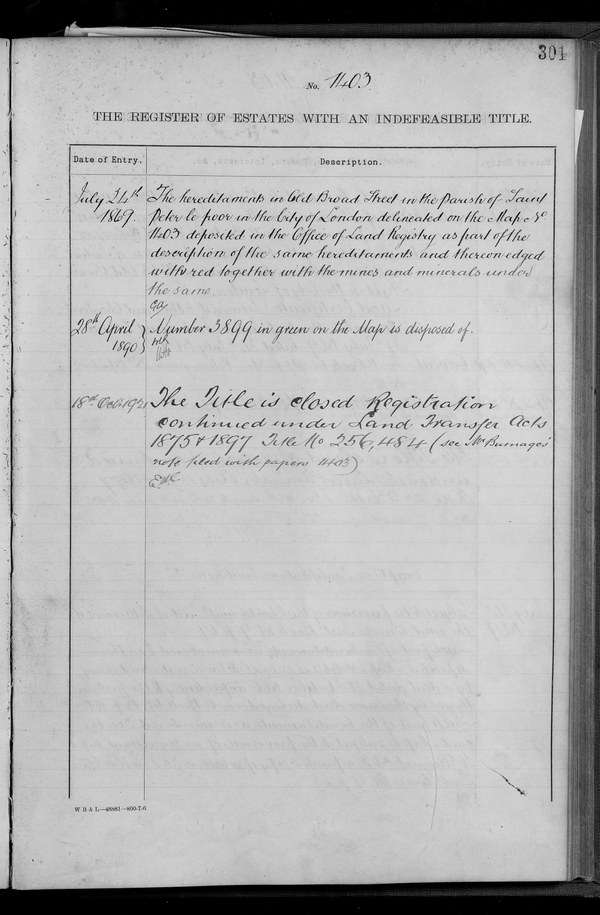 301
No. 1403
THE REGISTER OF ESTATES WITH AN INDEFEASIBLE TITLE.
Date of Entry. Description.
July 24th 1869. The hereditaments in Old Broad Street in the Parish of Saint
Peter le poor in the City of London delineated on the Map No
1403 deposited in the Office of Land Registry as part of the
description of the same hereditaments and thereon edged
with red together with the mines and minerals under
the same.
28th April 1890 Number 3899 in green on the Map is disposed of.
18th Oct 1921 The Title is closed Registration
continued under Land Transfer Acts
1875 & 1897 Title No 256,484 (see Mr Burnage's
note filed with papers 1403)
W B & L—48981—800-7-6